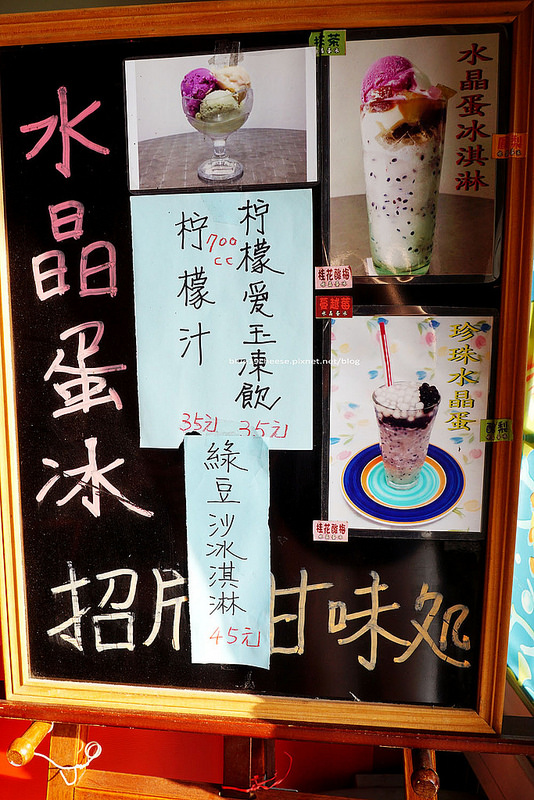 水晶蛋冰
招牌甘味処
檸檬愛玉凍飲
35元
檸檬汁
700cc
35元
綠豆沙冰淇淋
45元
水晶蛋冰淇淋
珍珠水晶蛋
桂花酸梅
蔓越莓
桂花酸梅